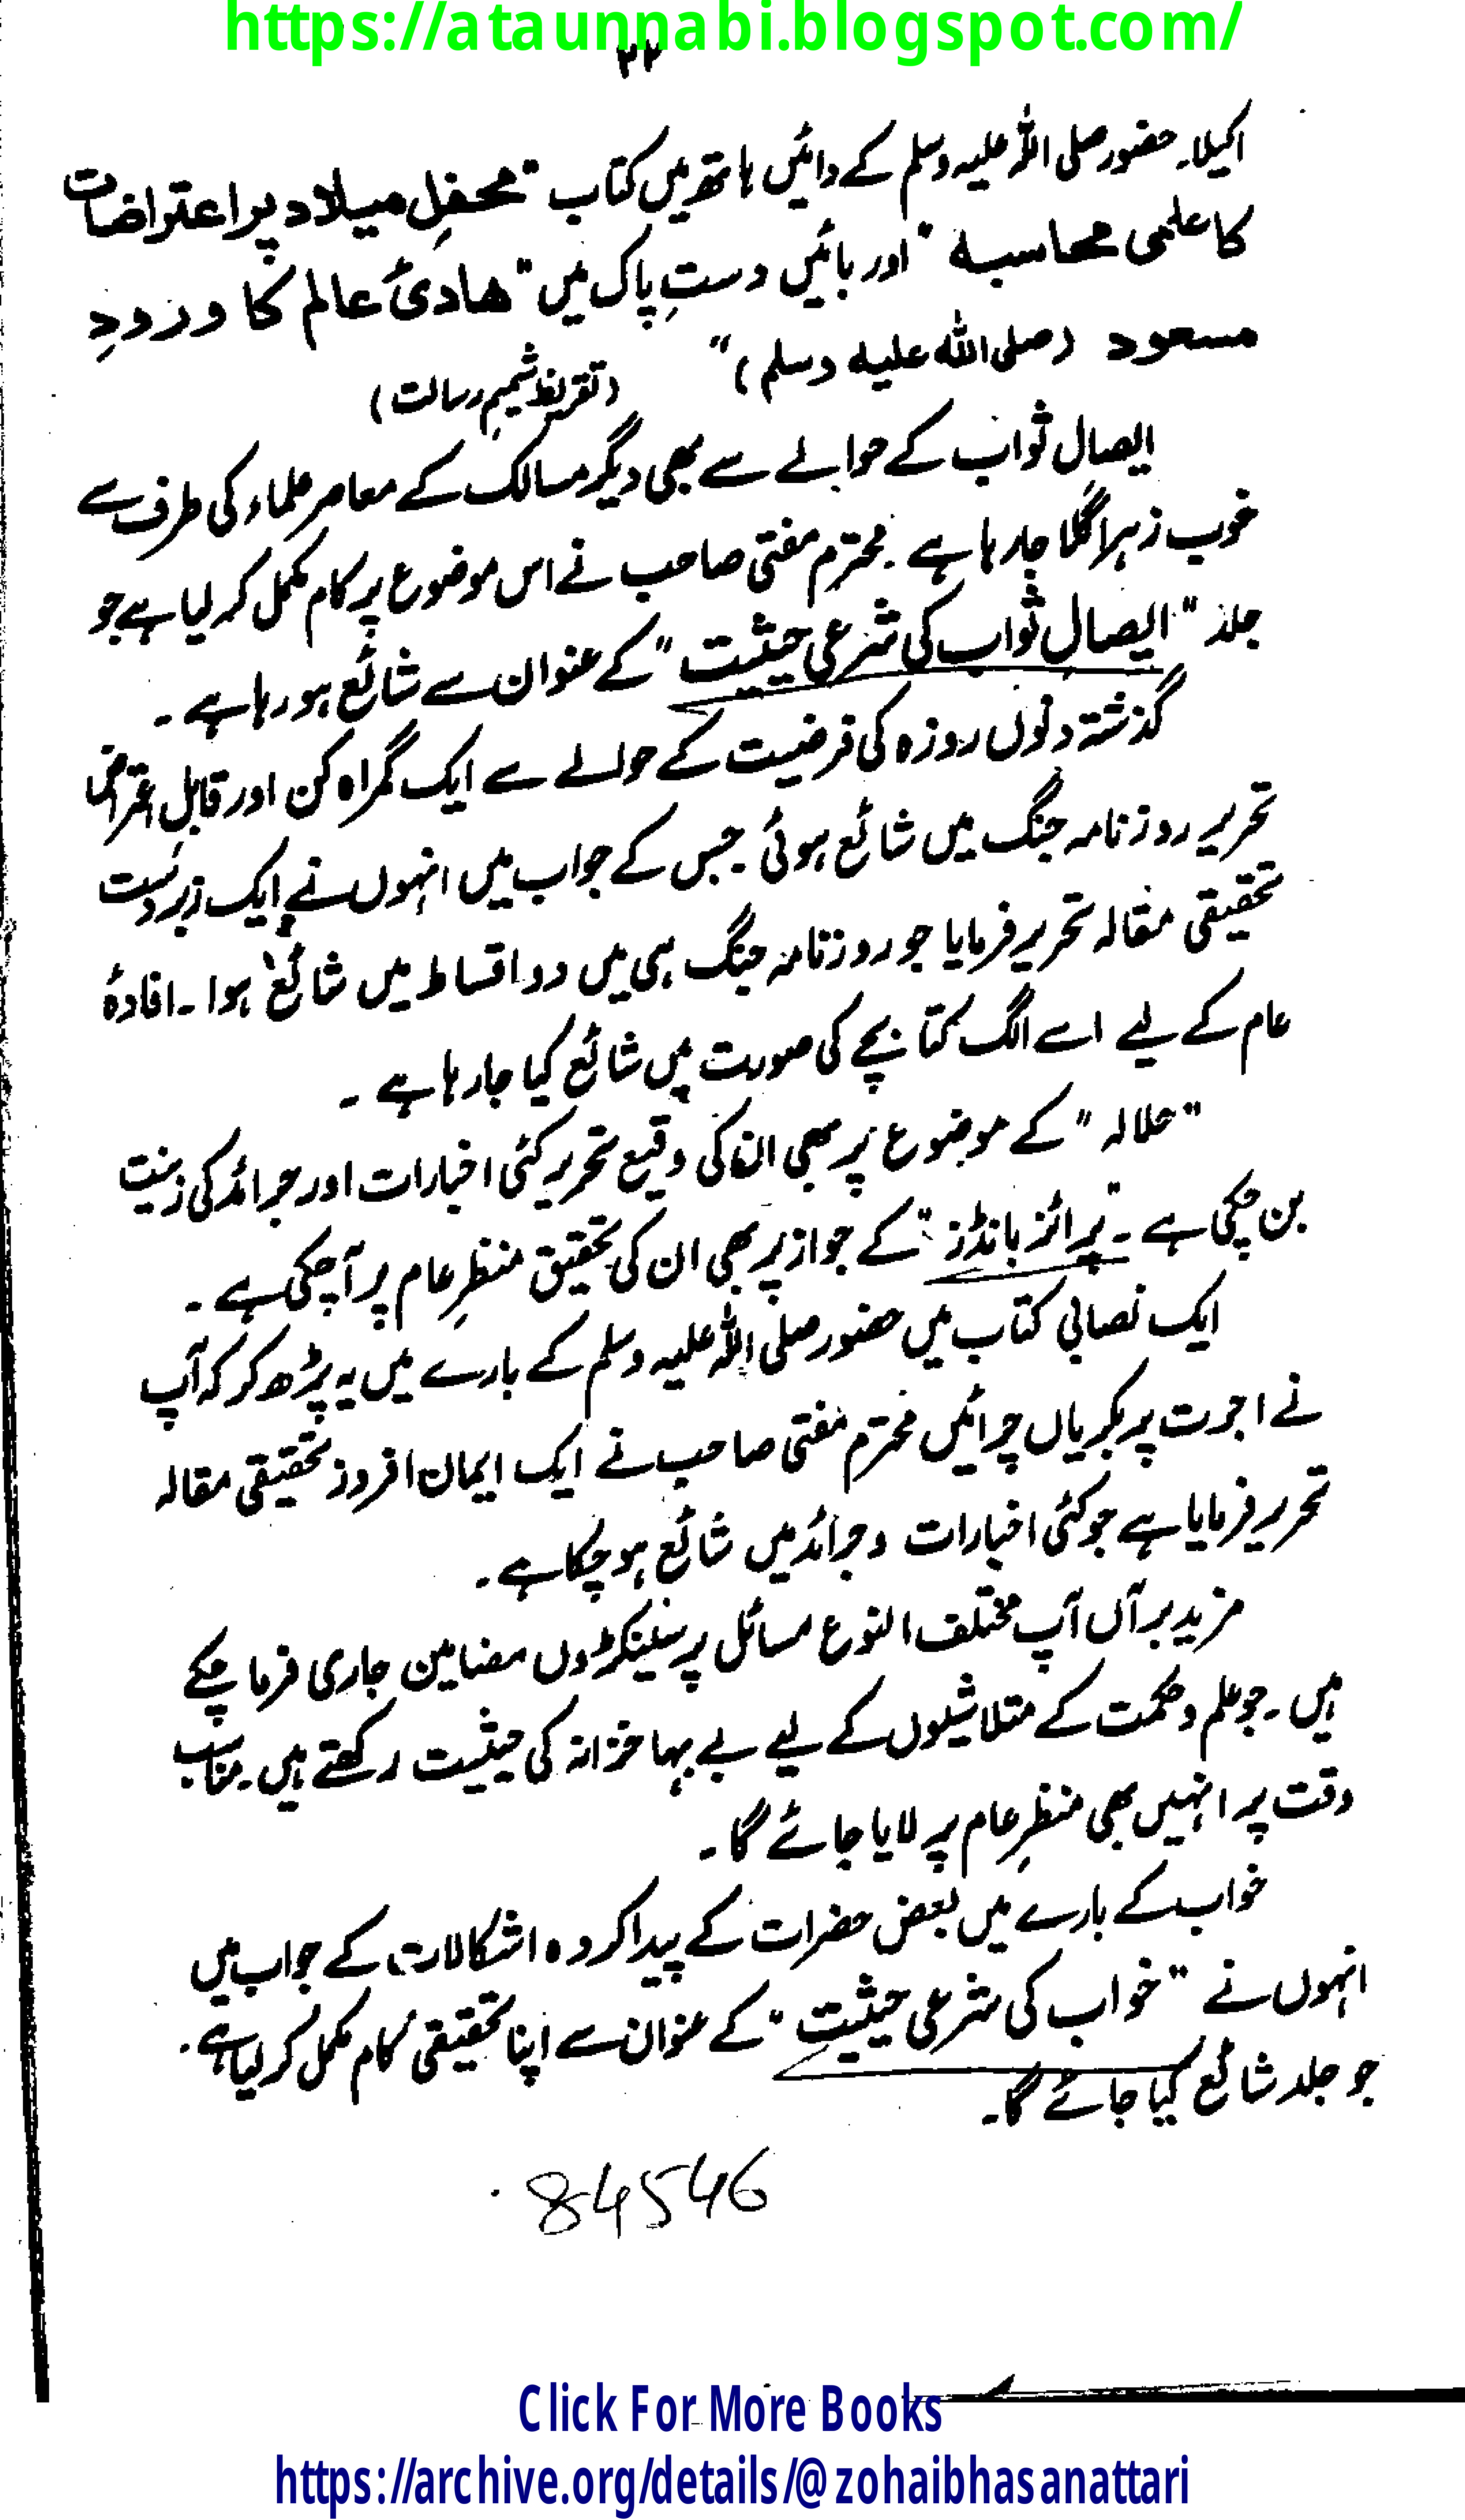 https://ataunnabi.blogspot.com/
۲۲
اکیلا۔ حضور صلی اللہ علیہ وسلم کے دائیں ہاتھ میں کتاب "محفلِ میلاد پر اعتراضات
کا علمی محاسبہ" اور بائیں دستِ پاک میں "ھادیٔ عالم کا ورودِ
مسعود (صلی اللہ علیہ وسلم)"
(تقریظ شمیمِ رسالت)
ایصال ثواب کے حوالے سے بھی دیگر مسالک کے معاصر علماء کی طرف سے
خوب زہر اگلا جا رہا ہے۔ محترم مفتی صاحب نے اس موضوع پر کام مکمل کر لیا ہے جو
جلد "ایصال ثواب کی شرعی حیثیت" کے عنوان سے شائع ہو رہا ہے۔
گذشتہ دنوں روزہ کی فرضیت کے حوالے سے ایک گمراہ کن اور قابلِ اعتراض
تحریر روزنامہ جنگ میں شائع ہوئی جس کے جواب میں انہوں نے ایک زبردست
تحقیقی مقالہ تحریر فرمایا جو روزنامہ جنگ ہی میں دو اقساط میں شائع ہوا۔ افادۂ
عام کے لیے اسے الگ کتابچے کی صورت میں شائع کیا جا رہا ہے۔
"حلالہ" کے موضوع پر بھی ان کی وقیع تحریر کئی اخبارات اور جرائد کی زینت
بن چکی ہے۔ "پرائز بانڈز" کے جواز پر بھی ان کی تحقیق منظرِ عام پر آ چکی ہے۔
ایک نصابی کتاب میں حضور صلی اللہ علیہ وسلم کے بارے میں یہ پڑھ کر کہ آپ
نے اجرت پر بکریاں چرائیں محترم مفتی صاحب نے ایک ایمان افروز تحقیقی مقالہ
تحریر فرمایا ہے جو کئی اخبارات و جرائد میں شائع ہو چکا ہے۔
مزید برآں آپ مختلف النوع مسائل پر سینکڑوں مضامین جاری فرما چکے
ہیں۔ جو علم و حکمت کے متلاشیوں کے لیے بے بہا خزانہ کی حیثیت رکھتے ہیں۔ مناسب
وقت پر انہیں بھی منظرِ عام پر لایا جائے گا۔
خواب کے بارے میں بعض حضرات کے پیدا کردہ اشکالات کے جواب میں
انہوں نے "خواب کی شرعی حیثیت" کے عنوان سے اپنا تحقیقی کام مکمل کر لیا ہے۔
جو جلد شائع کیا جائے گا۔
84546
Click For More Books
https://archive.org/details/@zohaibhasanattari